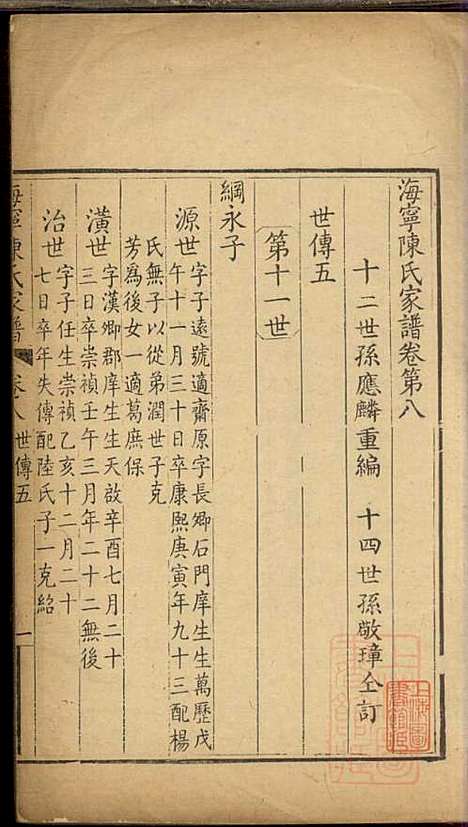 海寧陳氏家譜卷第八
十二世孫應麟重編　十四世孫敬璋仝訂
世傳五
第十一世
綱永子
源世　字子遠號適齋原字長卿石門庠生生萬歷戊
午十一月三十日卒康熙庚寅年九十三配楊
氏無子以從弟潤世子克
芳爲後女一適葛庶保
濆世　字漢卿郡庠生生天啟辛酉七月二十
三日卒崇禎壬午三月年二十二無後
治世　字子任生崇禎乙亥十二月二十
七日卒年失傳配陸氏子一克紹
海寧陳氏家譜　卷八世傳五　一